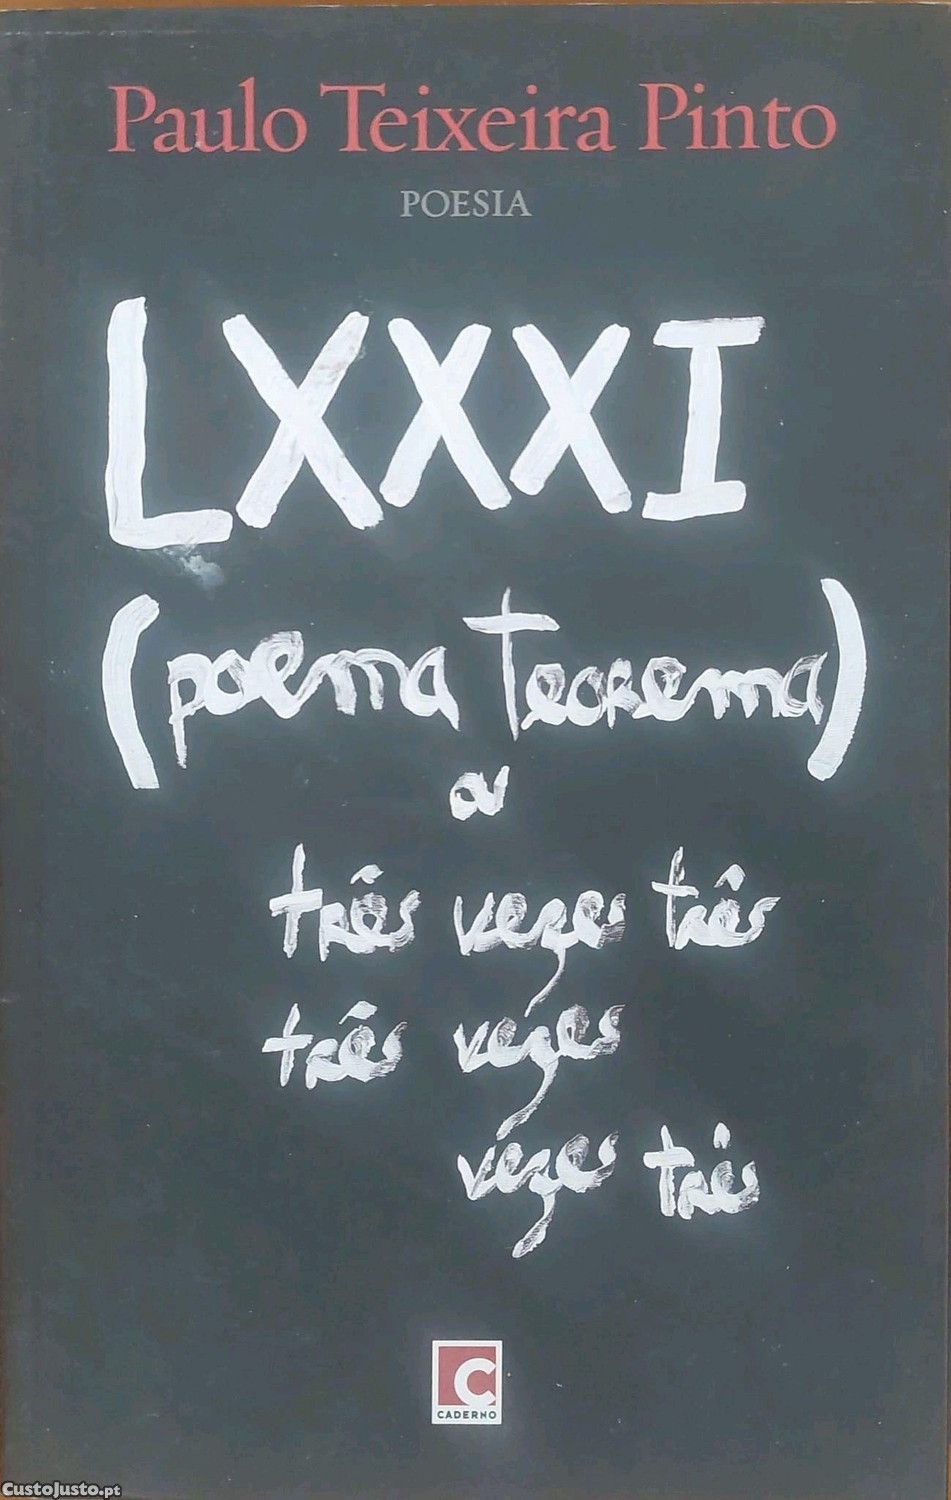 Paulo Teixeira Pinto
POESIA
LXXXI
(poema Teorema)
ou
três vezes três
três vezes
vezes três
C
CADERNO
CustoJusto.pt